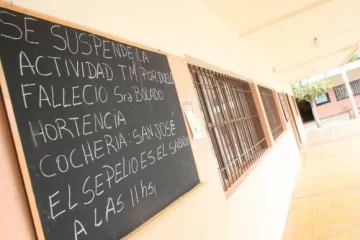 SE SUSPENDE LA
ACTIVIDAD TM POR DUELO
FALLECIO Sra BOLADO
HORTENCIA
COCHERIA: SAN JOSÉ
EL SEPELIO ES EL SABADO
A LAS 11 hs,